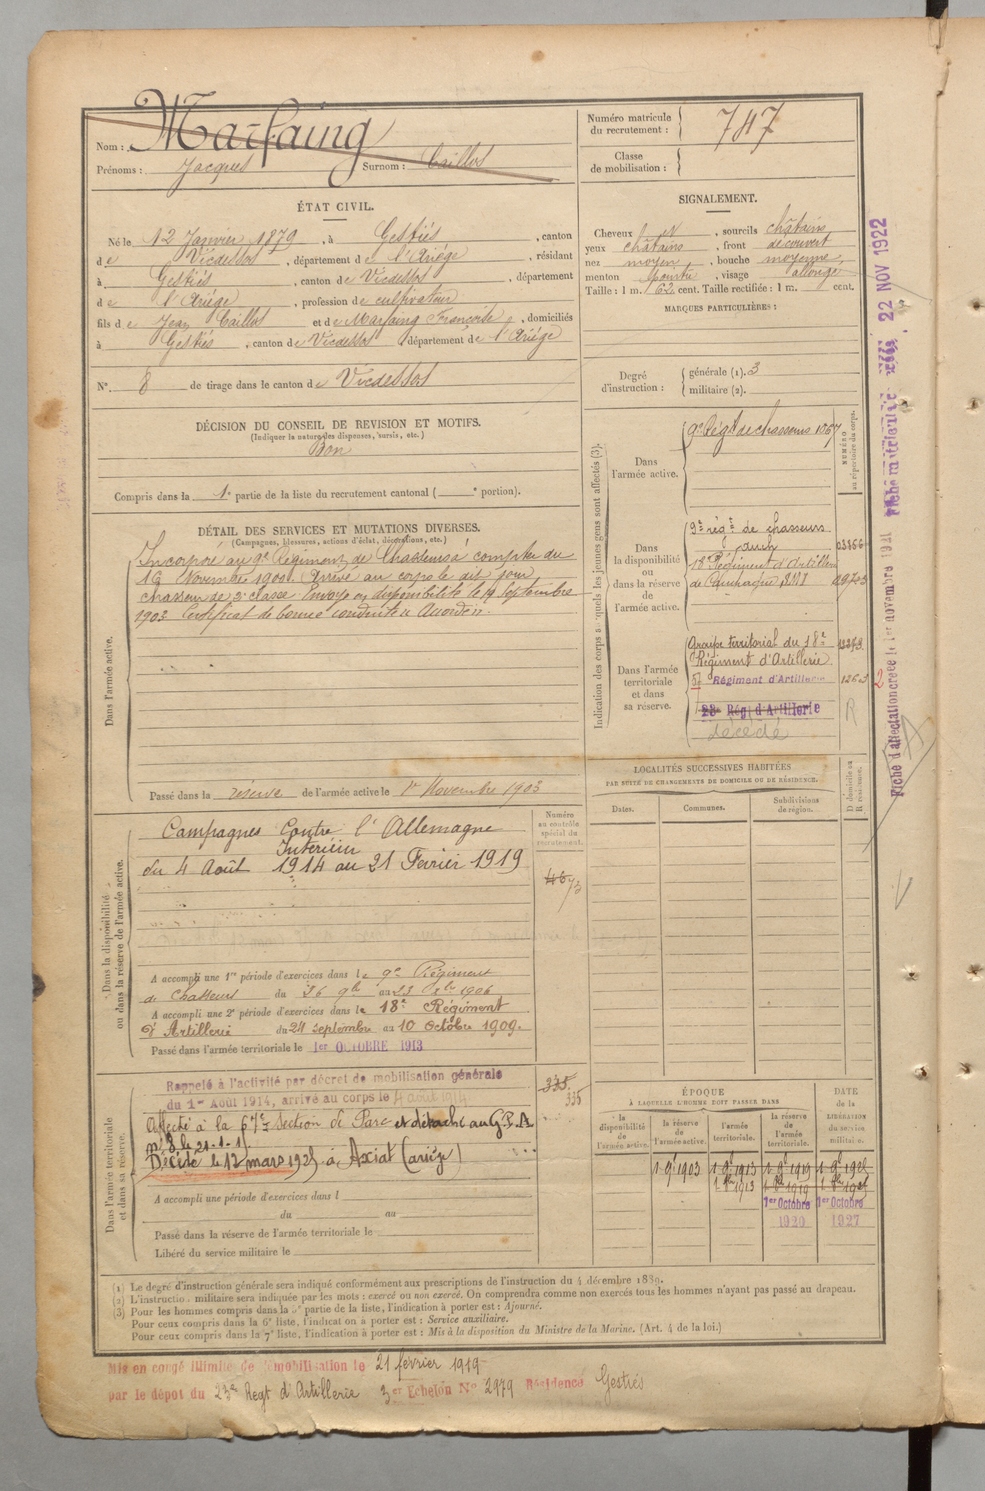 Nom : Marfaing
Prénoms : Jacques Surnom : Caillos
Numéro matricule du recrutement : 747
Classe de mobilisation :
ÉTAT CIVIL.
Né le 12 Janvier 1879, à Gestiés, canton
de Vicdessos, département de l'Ariége, résidant
à Gestiés, canton de Vicdessos, département
de l'Ariége, profession de cultivateur
fils de Jean Caillos et de Marfaing Françoise, domiciliés
à Gestiés, canton de Vicdessos, département de l'Ariége
N° 8 de tirage dans le canton de Vicdessos
SIGNALEMENT.
Cheveux et, sourcils châtains
yeux châtains, front découvert
nez moyen, bouche moyenne,
menton pointu, visage allongé
Taille : 1 m. 62 cent. Taille rectifiée : 1 m. cent.
MARQUES PARTICULIÈRES :
Degré d'instruction :
générale (1). 3
militaire (2).
DÉCISION DU CONSEIL DE REVISION ET MOTIFS.
(Indiquer la nature des dispenses, sursis, etc.)
Bon
Compris dans la 1e partie de la liste du recrutement cantonal ( e portion).
DÉTAIL DES SERVICES ET MUTATIONS DIVERSES.
(Campagnes, blessures, actions d'éclat, décorations, etc.)
Dans l'armée active.
Incorporé au 9e Régiment de Chasseurs à compter du
16 Novembre 1900. Arrivé au corps le dit jour
chasseur de 2e classe. Envoyé en disponibilité le 19 Septembre
1903 Certificat de bonne conduite "Accordé".
Passé dans la réserve de l'armée active le 1er Novembre 1903
Indication des corps auxquels les jeunes gens sont affectés (3).
NUMÉRO au répertoire du corps.
Dans l'armée active.
9e Régt de chasseurs 1067
Dans la disponibilité ou dans la réserve de l'armée active.
9e régt de chasseurs 03856
Auch
18e Régiment d'Artillerie
de Campagne
Dans l'armée territoriale et dans sa réserve.
Groupe territorial du 18e
Régiment d'Artillerie
57 Régiment d'Artillerie
23e Régt d'Artillerie
décédé
R
LOCALITÉS SUCCESSIVES HABITÉES
PAR SUITE DE CHANGEMENTS DE DOMICILE OU DE RÉSIDENCE.
Dates. Communes. Subdivisions de région. D. domicile ou R. résidence.
Fiche d'affectation créée le 1er novembre 1921
Fiche matricule 22 NOV 1922
2
Dans la disponibilité ou dans la réserve de l'armée active.
Numéro au contrôle spécial du recrutement.
Campagnes Contre l'Allemagne
Intérieur
du 4 Août 1914 au 21 Fevrier 1919
A accompli une 1re période d'exercices dans le 9e Régiment
de Chasseurs du 26 9bre au 23 Xbre 1906
A accompli une 2e période d'exercices dans le 18e Régiment
d'Artillerie du 24 septembre au 10 octobre 1909.
Passé dans l'armée territoriale le 1er OCTOBRE 1913
Dans l'armée territoriale et dans sa réserve.
335
335
Rappelé à l'activité par décret de mobilisation générale
du 1er Août 1914, arrivé au corps le 4 août 1914
Affecté à la Section de Parc et détaché au G.P.A.
Décédé le 12 mars 1925 à Axiat (ariège)
A accompli une période d'exercices dans l
du au
Passé dans la réserve de l'armée territoriale le
Libéré du service militaire le
ÉPOQUE
À LAQUELLE L'HOMME DOIT PASSER DANS
la disponibilité de l'armée active.
la réserve de l'armée active.
l'armée territoriale.
la réserve de l'armée territoriale.
DATE de la LIBÉRATION du service militaire.
1 9bre 1903 1 9bre 1913 1 9bre 1919
1 8bre 1913 1 8bre 1919
1er Octobre 1er Octobre
1920 1927
(1) Le degré d'instruction générale sera indiqué conformément aux prescriptions de l'instruction du 4 décembre 1889.
(2) L'instruction militaire sera indiquée par les mots : exercé ou non exercé. On comprendra comme non exercés tous les hommes n'ayant pas passé au drapeau.
(3) Pour les hommes compris dans la 5e partie de la liste, l'indication à porter est : Ajourné.
Pour ceux compris dans la 6e liste, l'indication à porter est : Service auxiliaire.
Pour ceux compris dans la 7e liste, l'indication à porter est : Mis à la disposition du Ministre de la Marine. (Art. 4 de la loi.)
Mis en congé illimité de démobilisation le 21 février 1919
par le dépôt du 23e Regt d'Artillerie 3er Echelon N° 2979 Résidence Gestiés